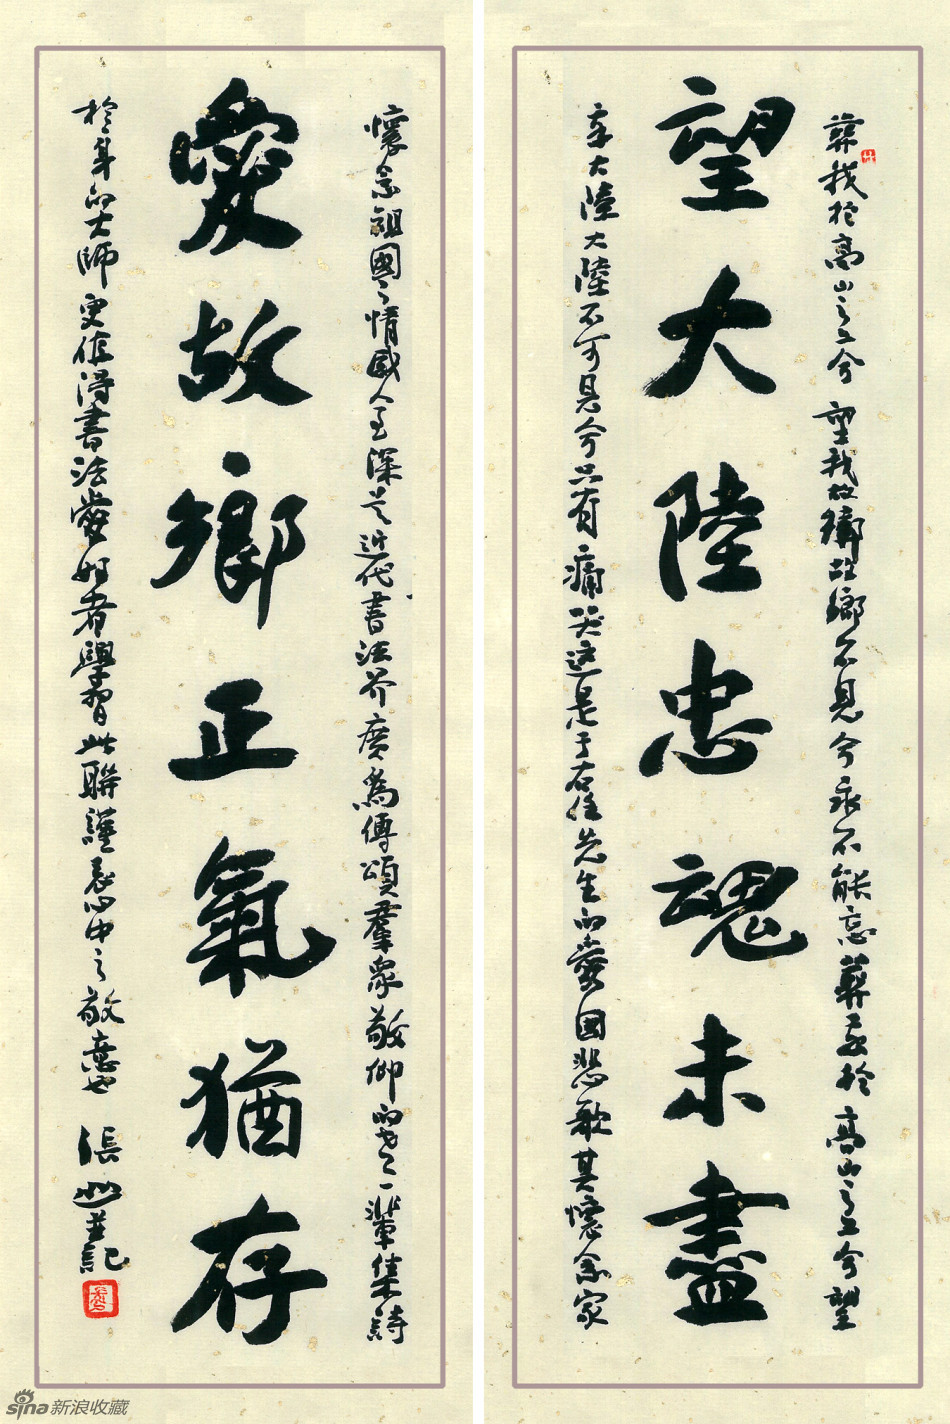 葬我於高山之上兮 望我故鄉故鄉不見兮永不能忘葬我於高山之上兮望
望大陸忠魂未盡
我大陸大陸不可見兮只有痛哭這是于右任先生的愛國悲歌其懷念家
懷念祖國之情感人至深是近代書法界廣為傳頌羣眾敬仰的老一輩集詩
愛故鄉正氣猶存
於一身的大師更值得書法愛好者學習此聯謹表心中之敬意也 張 並記
sina 新浪收藏